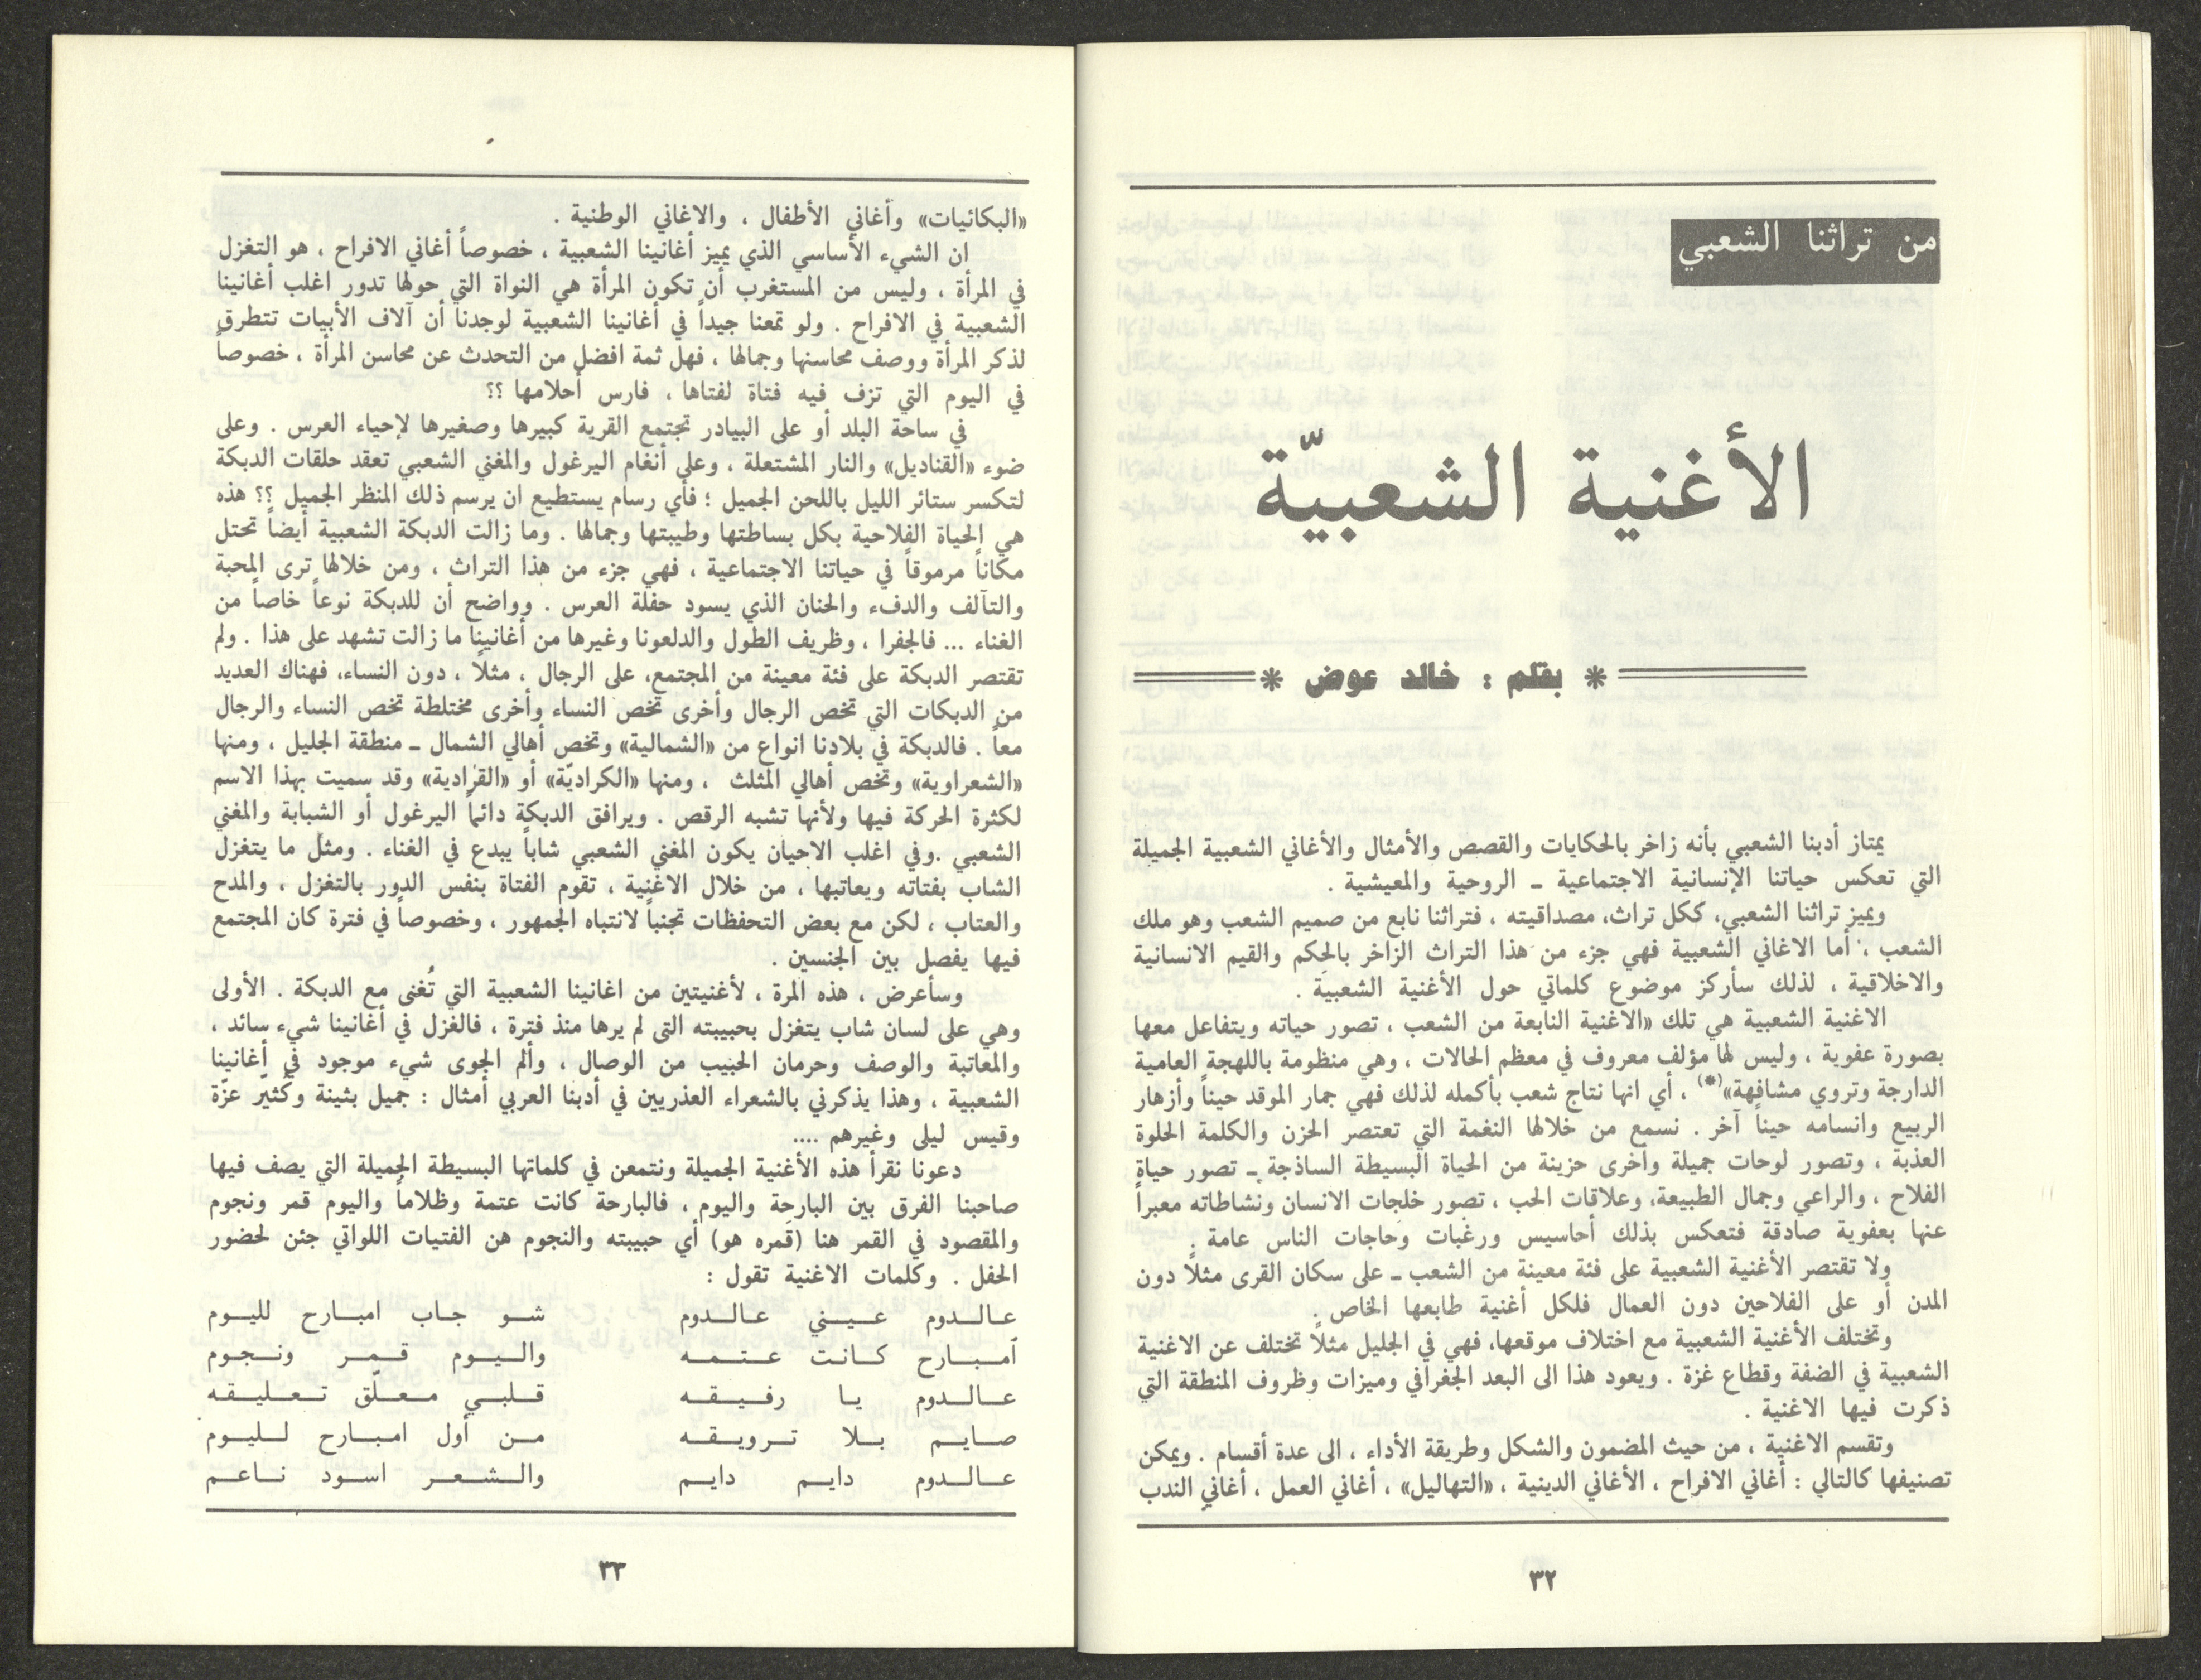 من تراثنا الشعبي
الأغنية الشعبيّة
* بقلم : خالد عوض *
يمتاز أدبنا الشعبي بأنه زاخر بالحكايات والقصص والأمثال والأغاني الشعبية الجميلة
التي تعكس حياتنا الإنسانية الاجتماعية ـ الروحية والمعيشية .
ويميز تراثنا الشعبي، ككل تراث، مصداقيته ، فتراثنا نابع من صميم الشعب وهو ملك
الشعب ، أما الاغاني الشعبية فهي جزء من هذا التراث الزاخر بالحِكم والقيم الانسانية
والاخلاقية ، لذلك سأركز موضوع كلماتي حول الأغنية الشعبية .
الاغنية الشعبية هي تلك «الاغنية النابعة من الشعب ، تصور حياته ويتفاعل معها
بصورة عفوية ، وليس لها مؤلف معروف في معظم الحالات ، وهي منظومة باللهجة العامية
الدارجة وتروي مشافهة»(*) ، أي انها نتاج شعب بأكمله لذلك فهي جمار الموقد حيناً وأزهار
الربيع وانسامه حيناً آخر . نسمع من خلالها النغمة التي تعتصر الحزن والكلمة الحلوة
العذبة ، وتصور لوحات جميلة وأخرى حزينة من الحياة البسيطة الساذجة ـ تصور حياة
الفلاح ، والراعي وجمال الطبيعة، وعلاقات الحب ، تصور خلجات الانسان ونشاطاته معبراً
عنها بعفوية صادقة فتعكس بذلك أحاسيس ورغبات وحاجات الناس عامة .
ولا تقتصر الأغنية الشعبية على فئة معينة من الشعب ـ على سكان القرى مثلاً دون
المدن أو على الفلاحين دون العمال فلكل أغنية طابعها الخاص .
وتختلف الأغنية الشعبية مع اختلاف موقعها، فهي في الجليل مثلاً تختلف عن الاغنية
الشعبية في الضفة وقطاع غزة . ويعود هذا الى البعد الجغرافي وميزات وظروف المنطقة التي
ذكرت فيها الاغنية .
وتقسم الاغنية ، من حيث المضمون والشكل وطريقة الأداء ، الى عدة أقسام . ويمكن
تصنيفها كالتالي : أغاني الافراح ، الأغاني الدينية ، «التهاليل» ، أغاني العمل ، أغاني الندب
٣٢
«البكائيات» وأغاني الأطفال ، والاغاني الوطنية .
ان الشيء الأساسي الذي يميز أغانينا الشعبية ، خصوصاً أغاني الافراح ، هو التغزل
في المرأة ، وليس من المستغرب أن تكون المرأة هي النواة التي حولها تدور اغلب أغانينا
الشعبية في الافراح . ولو تمعنا جيداً في أغانينا الشعبية لوجدنا أن آلاف الأبيات تتطرق
لذكر المرأة ووصف محاسنها وجمالها ، فهل ثمة افضل من التحدث عن محاسن المرأة ، خصوصاً
في اليوم التي تزف فيه فتاة لفتاها ، فارس أحلامها ؟؟
في ساحة البلد أو على البيادر تجتمع القرية كبيرها وصغيرها لإحياء العرس . وعلى
ضوء «القناديل» والنار المشتعلة ، وعلى أنغام اليرغول والمغني الشعبي تعقد حلقات الدبكة
لتكسر ستائر الليل باللحن الجميل ؛ فأي رسام يستطيع ان يرسم ذلك المنظر الجميل ؟؟ هذه
هي الحياة الفلاحية بكل بساطتها وطيبتها وجمالها . وما زالت الدبكة الشعبية أيضاً تحتل
مكاناً مرموقاً في حياتنا الاجتماعية ، فهي جزء من هذا التراث ، ومن خلالها ترى المحبة
والتآلف والدفء والحنان الذي يسود حفلة العرس . وواضح أن للدبكة نوعاً خاصاً من
الغناء ... فالجفرا ، وظريف الطول والدلعونا وغيرها من أغانينا ما زالت تشهد على هذا . ولم
تقتصر الدبكة على فئة معينة من المجتمع، على الرجال ، مثلاً ، دون النساء، فهناك العديد
من الدبكات التي تخص الرجال وأخرى تخص النساء وأخرى مختلطة تخص النساء والرجال
معاً . فالدبكة في بلادنا انواع من «الشمالية» وتخص أهالي الشمال ـ منطقة الجليل ، ومنها
«الشعراوية» وتخص أهالي المثلث ، ومنها «الكراديّة» أو «القرادية» وقد سميت بهذا الاسم
لكثرة الحركة فيها ولأنها تشبه الرقص . ويرافق الدبكة دائماً اليرغول أو الشبابة والمغني
الشعبي .وفي اغلب الاحيان يكون المغني الشعبي شاباً يبدع في الغناء . ومثل ما يتغزل
الشاب بفتاته ويعاتبها ، من خلال الاغنية ، تقوم الفتاة بنفس الدور بالتغزل ، والمدح
والعتاب ، لكن مع بعض التحفظات تجنباً لانتباه الجمهور ، وخصوصاً في فترة كان المجتمع
فيها يفصل بين الجنسين .
وسأعرض ، هذه المرة ، لأغنيتين من اغانينا الشعبية التي تُغنى مع الدبكة . الأولى
وهي على لسان شاب يتغزل بحبيبته التى لم يرها منذ فترة ، فالغزل في أغانينا شيء سائد ،
والمعاتبة والوصف وحرمان الحبيب من الوصال ، وألم الجوى شيء موجود في أغانينا
الشعبية ، وهذا يذكرني بالشعراء العذريين في أدبنا العربي أمثال : جميل بثينة وكُثيّر عزّة
وقيس ليلى وغيرهم ....
دعونا نقرأ هذه الأغنية الجميلة ونتمعن في كلماتها البسيطة الجميلة التي يصف فيها
صاحبنا الفرق بين البارحة واليوم ، فالبارحة كانت عتمة وظلاماً واليوم قمر ونجوم
والمقصود في القمر هنا (قمره هو) أي حبيبته والنجوم هن الفتيات اللواتي جئن لحضور
الحفل . وكلمات الاغنية تقول :
عالدوم عيني عالدوم شو جاب امبارح لليوم
أمبارح كانت عتمه واليوم قمر ونجوم
عالدوم يا رفيقه قلبي معلّق تعليقه
صايم بلا ترويقه من أول امبارح لليوم
عالدوم دايم دايم والشعر اسود ناعم
٣٣